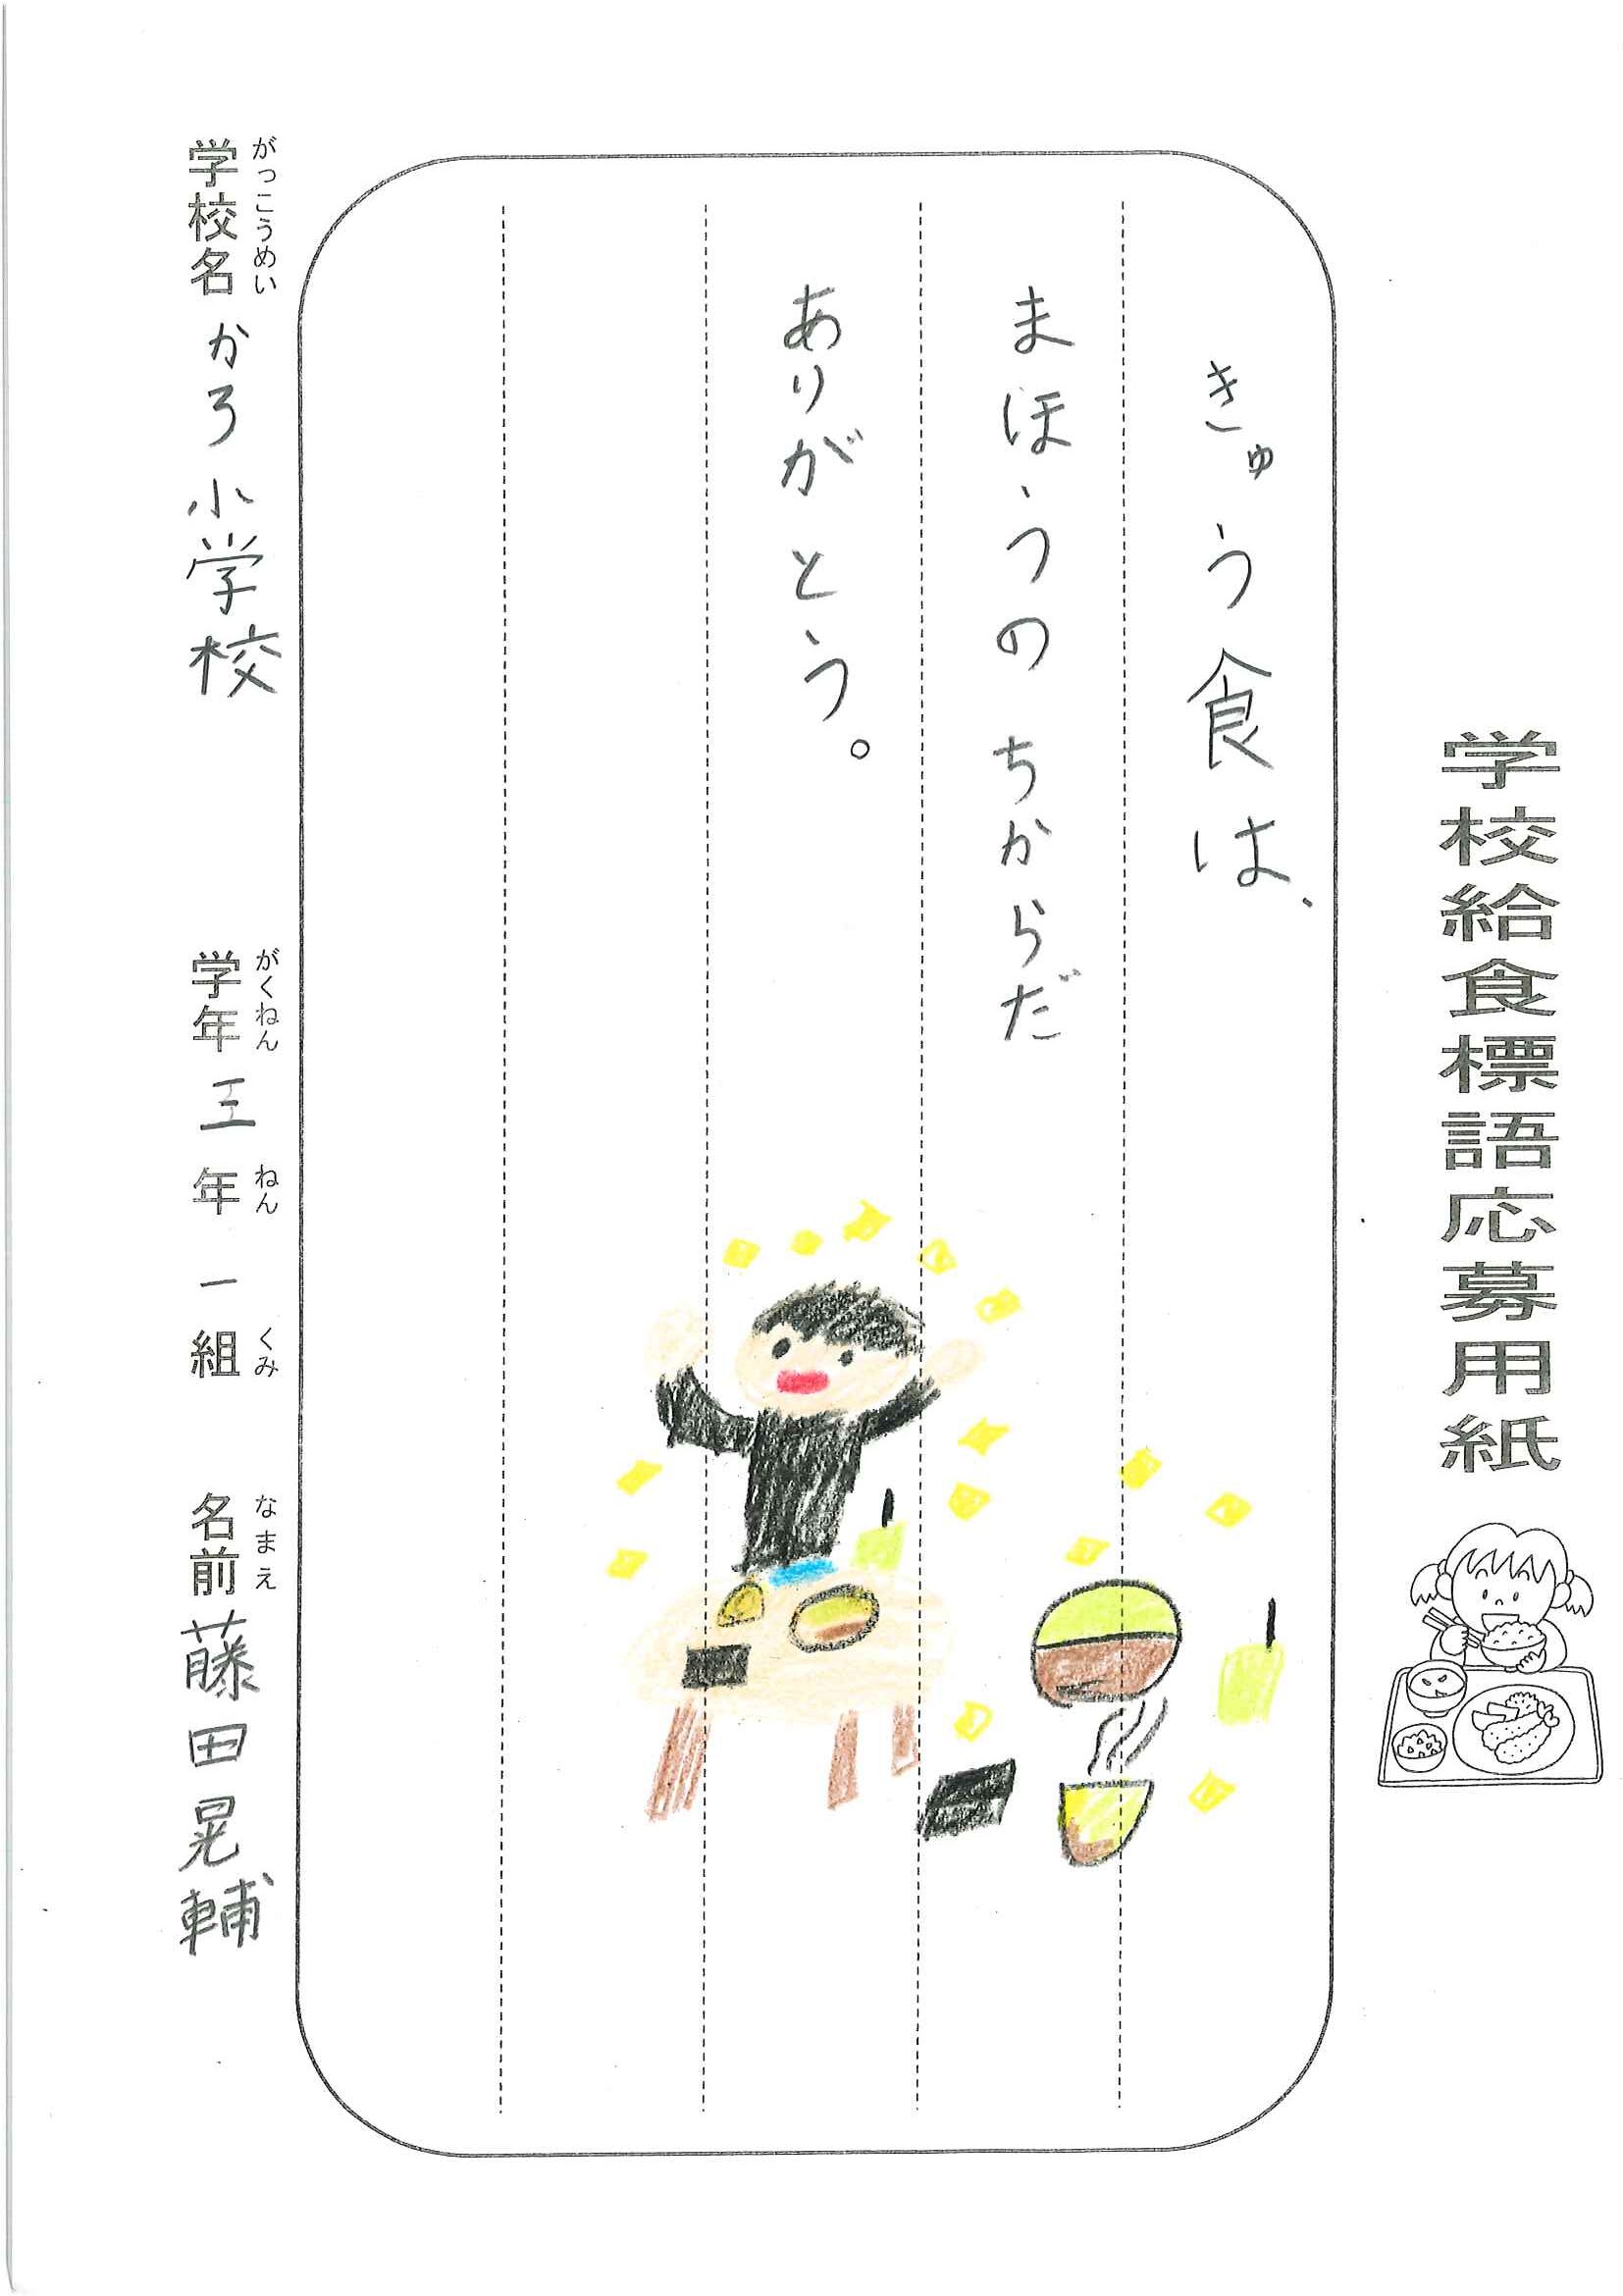 学校給食標語応募用紙
きゅう食は、
まほうのちからだ
ありがとう。
学校名 かろ小学校 学年 三年 一組 名前 藤田晃輔
がっこうめい がくねん ねん くみ なまえ